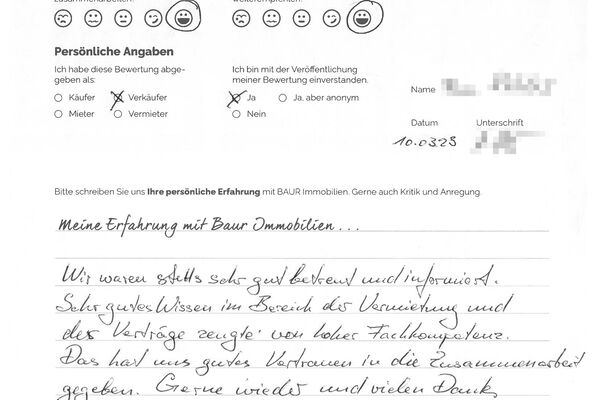 zusammenarbeiten. weiterempfehlen.
Persönliche Angaben
Ich habe diese Bewertung abge-
geben als:
Käufer Verkäufer
Mieter Vermieter
Ich bin mit der Veröffentlichung
meiner Bewertung einverstanden.
Ja Ja, aber anonym
Nein
Name
Datum Unterschrift
10.03.23
Bitte schreiben Sie uns Ihre persönliche Erfahrung mit BAUR Immobilien. Gerne auch Kritik und Anregung.
Meine Erfahrung mit Baur Immobilien...
Wir waren stetts sehr gut betreut und informiert.
Sehr gutes Wissen im Bereich der Vermietung und
der Verträge zeugte von hoher Fachkompetenz.
Das hat uns gutes Vertrauen in die Zusammenarbeit
gegeben. Gerne wieder und vielen Dank,